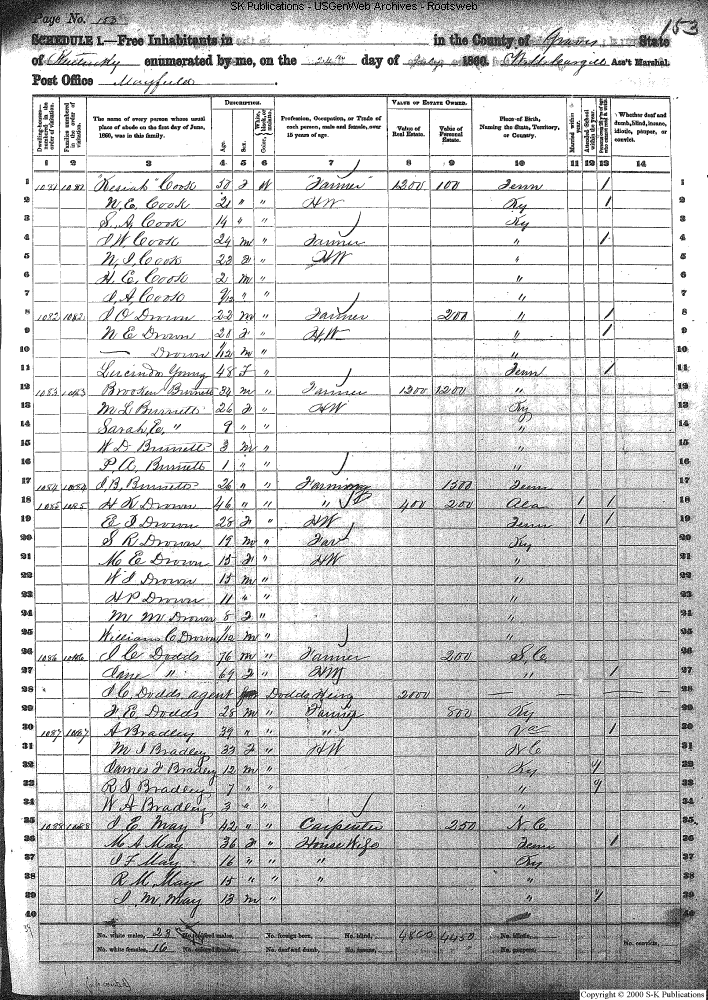 SK Publications - USGenWeb Archives - Rootsweb
Page No. 153
153
SCHEDULE 1.—Free Inhabitants in in the County of Graves State
of Kentucky enumerated by me, on the 24th day of 1860. Ass't Marshal.
Post Office Mayfield
Dwelling-houses—numbered in the order of visitation.
Families numbered in the order of visitation.
The name of every person whose usual place of abode on the first day of June, 1860, was in this family.
DESCRIPTION.
Age.
Sex.
Color,
Profession, Occupation, or Trade of each person, male and female, over 15 years of age.
VALUE OF ESTATE OWNED.
Value of Real Estate.
Value of Personal Estate.
Place of Birth, Naming the State, Territory, or Country.
Married within the year.
Attended School within the year.
Whether deaf and dumb, blind, insane, idiotic, pauper, or convict.
1 2 3 4 5 6 7 8 9 10 11 12 13 14
1 1081 1081 "Kesiah" Cook 50 F W "Farmer" 1200 100 Tenn / 1
2 N. E. Cook 21 " " HW Ky / 2
3 S. A. Cook 14 " " Ky 3
4 J W Cook 24 m " Farmer " / 4
5 N. J. Cook 23 F " HW " 5
6 H. E. Cook 2 m " " 6
7 J. A. Cook 9/12 " " " 7
8 1082 1082 J O Drown 22 m " Farmer 200 " / 8
9 N E Drown 20 F " H.W " / 9
10 — Drown 1/12 m " " 10
11 Lucinda Young 48 F " Tenn / 11
12 1083 1083 Brooken Burnett 34 m " Farmer 1200 1200 " 12
13 M L Burnett 26 F " HW Ky 13
14 Sarah E. " 9 " " " 14
15 W D Burnett 3 m " " 15
16 P. A. Burnett 1 " " " 16
17 1084 1084 J. B. Burnett 26 " " Farming 1500 Tenn 17
18 1085 1085 H K Drown 46 " " " 400 200 Ala 1 / 18
19 E J Drown 28 F " HW Tenn 1 / 19
20 S R Drown 19 m " Far Ky 20
21 M E Drown 15 F " HW " 21
22 W J Drown 15 m " " 22
23 H P Drown 11 " " " 23
24 M M Drown 8 F " " 24
25 William C Drown /12 m " " 25
26 1086 1086 J C Dodds 76 m " Farmer 250 S. C. 26
27 Jane " 69 F " HW " / 27
28 J C Dodds agent for Dodds Heirs 2000 — 28
29 F. E. Dodds 28 m " Farmer 800 Ky 29
30 1087 1087 A Bradley 39 " " " Va / 30
31 M J Bradley 33 F " HW N C 31
32 James F Bradley 12 m " Ky y 32
33 R J Bradley 7 " " " y 33
34 W A Bradley 3 " " " 34
35 1088 1088 J E May 42 " " Carpenter 250 N. C. 35
36 M A May 36 F " House Wife Tenn / 36
37 J F May 16 " " " Ky 37
38 R M May 15 " " " " 38
39 J. M. May 13 m " " y 39
40 40
No. white males, 23 No. colored males, No. foreign born, No. blind, 4800 4450 No. idiotic, No. convicts,
No. white females, 16 No. colored females, No. deaf and dumb, No. insane, No. paupers,
Copyright © 2000 S-K Publications